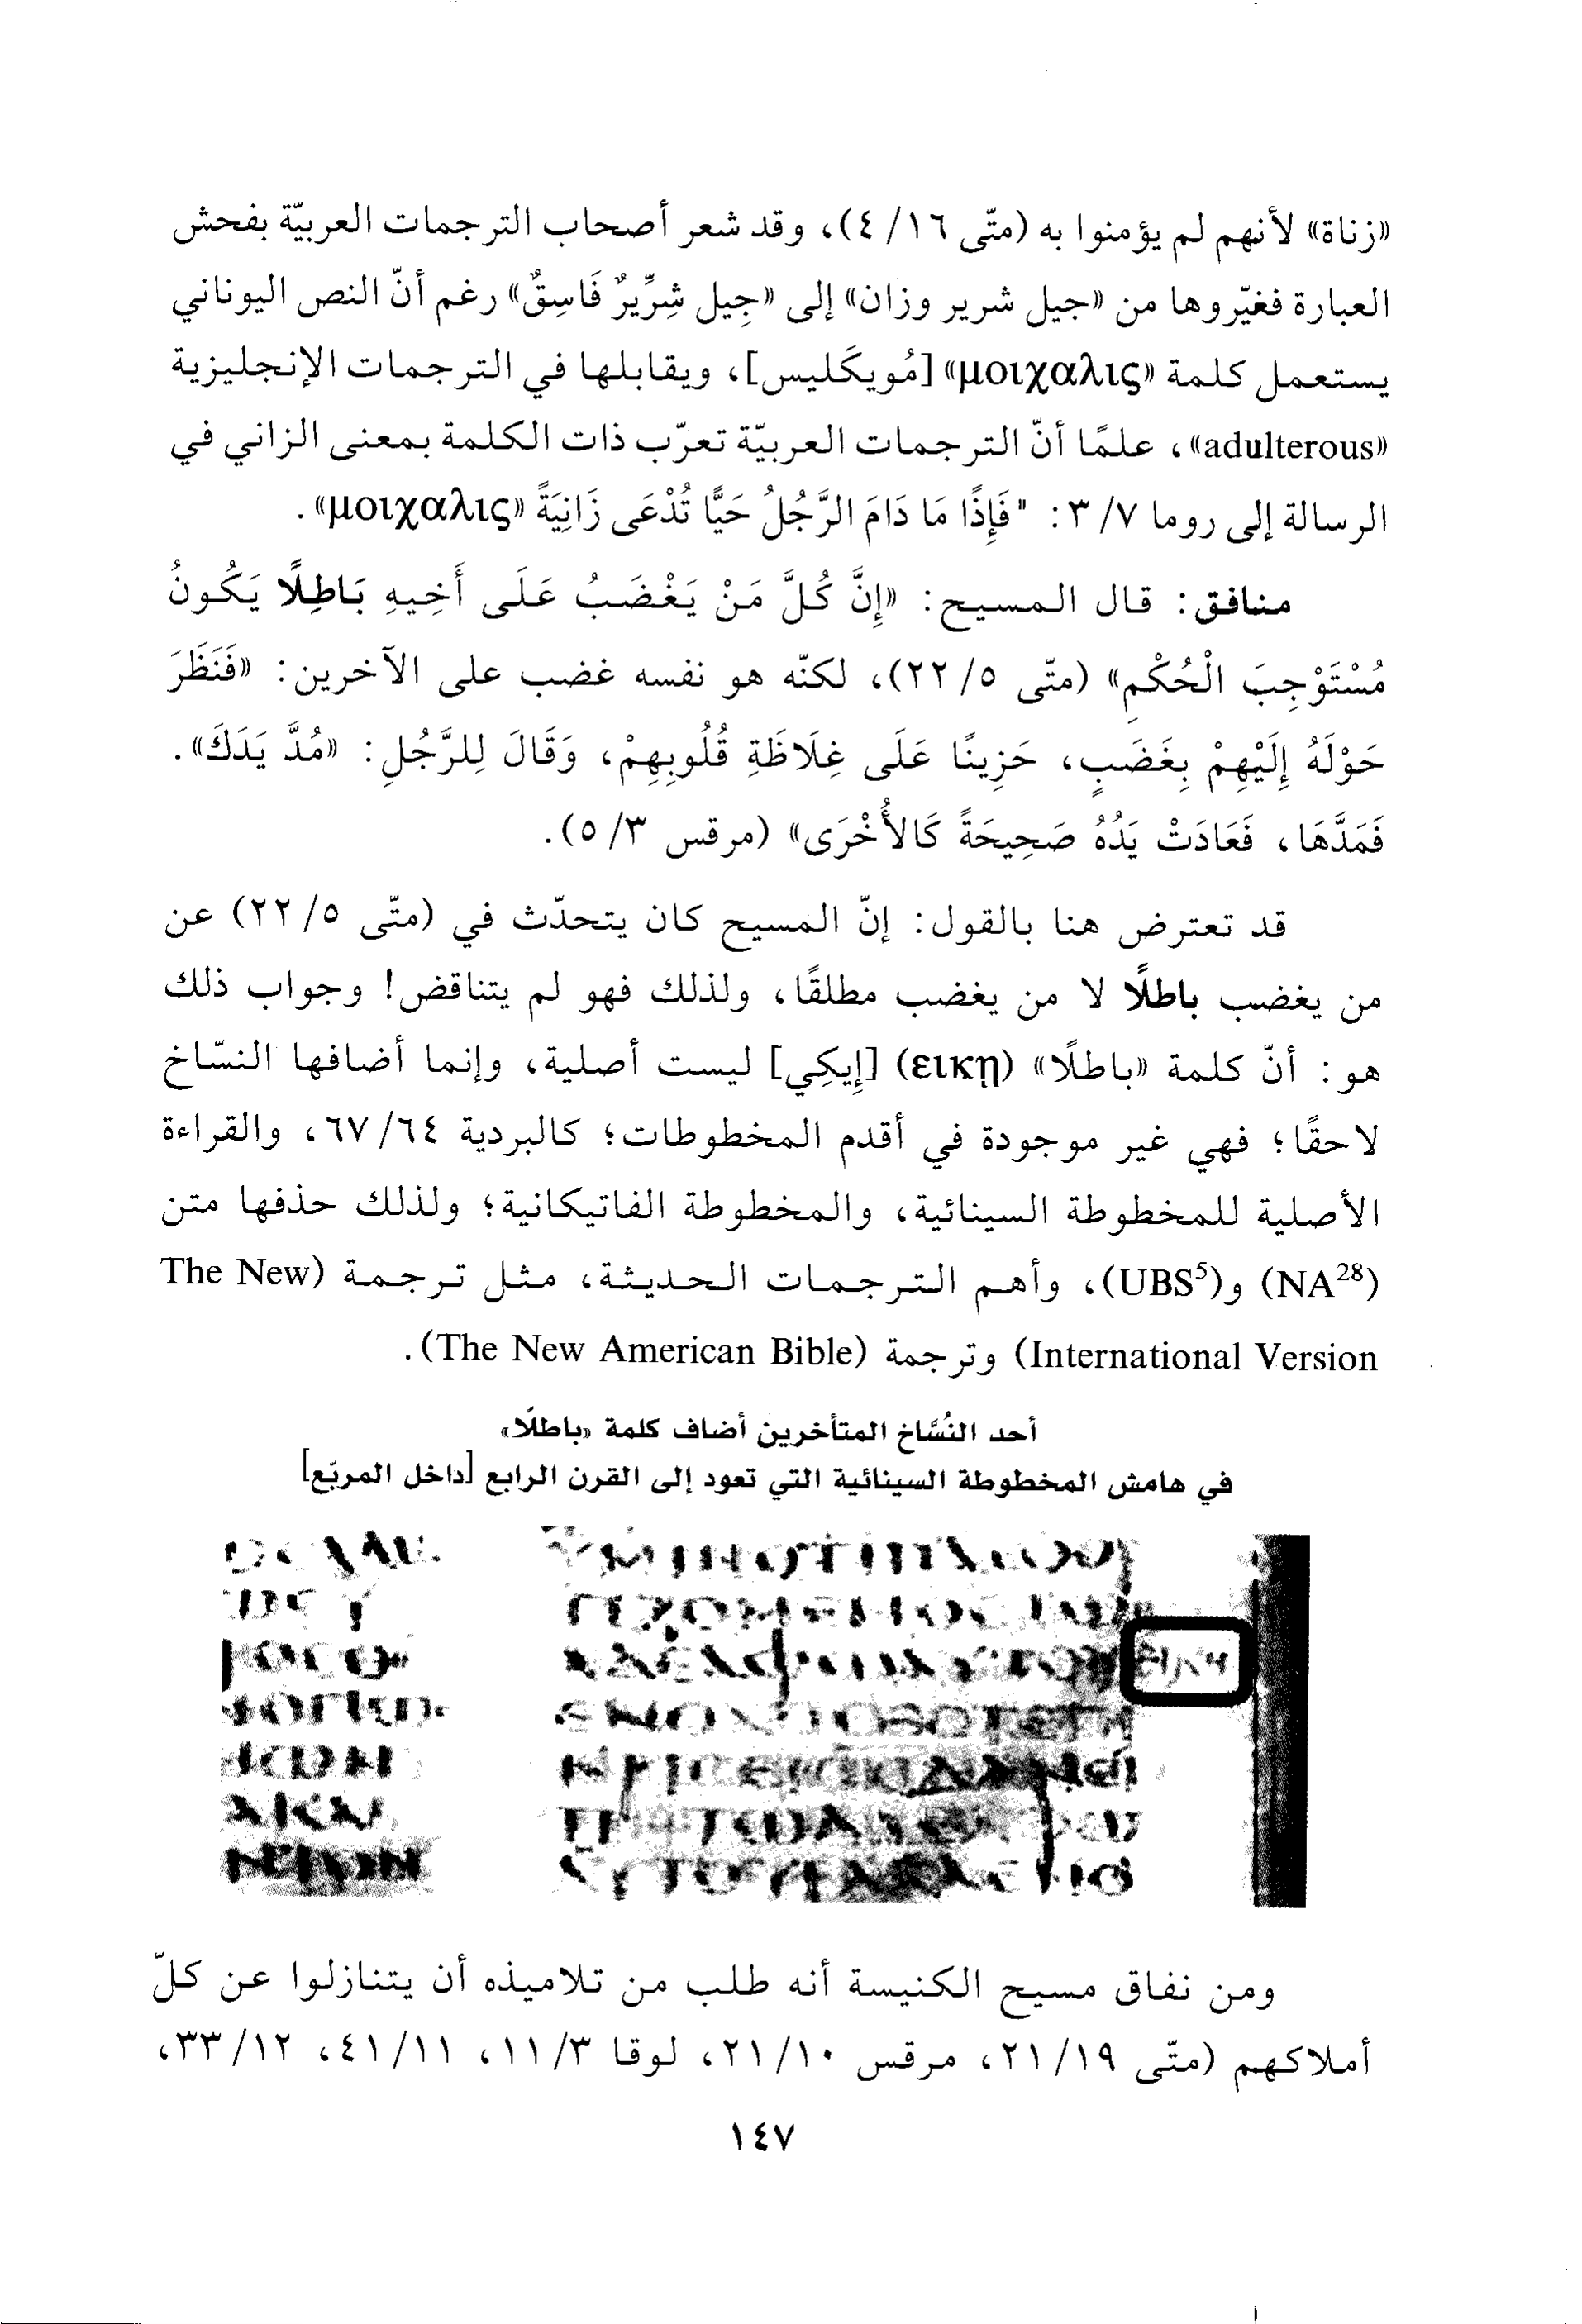 «زناة» لأنهم لم يؤمنوا به (متّى ١٦/ ٤)، وقد شعر أصحاب الترجمات العربيّة بفحش
العبارة فغيّروها من «جيل شرير وزان» إلى «جِيل شِرِّيرٌ فَاسِقٌ» رغم أنّ النص اليوناني
يستعمل كلمة «μοιχαλις» [مُويكَليس]، ويقابلها في الترجمات الإنجليزية
«adulterous»، علمًا أنّ الترجمات العربيّة تعرّب ذات الكلمة بمعنى الزاني في
الرسالة إلى روما ٧/ ٣: "فَإِذًا مَا دَامَ الرَّجُلُ حَيًّا تُدْعَى زَانِيَةً «μοιχαλις».
منافق: قال المسيح: «إِنَّ كُلَّ مَنْ يَغْضَبُ عَلَى أَخِيهِ بَاطِلًا يَكُونُ
مُسْتَوْجِبَ الْحُكْمِ» (متّى ٥/ ٢٢)، لكنّه هو نفسه غضب على الآخرين: «فَنَظَرَ
حَوْلَهُ إِلَيْهِمْ بِغَضَبٍ، حَزِينًا عَلَى غِلَاظَةِ قُلُوبِهِمْ، وَقَالَ لِلرَّجُلِ: «مُدَّ يَدَكَ».
فَمَدَّهَا، فَعَادَتْ يَدُهُ صَحِيحَةً كَالأُخْرَى» (مرقس ٣/ ٥).
قد تعترض هنا بالقول: إنّ المسيح كان يتحدّث في (متّى ٥/ ٢٢) عن
من يغضب باطلًا لا من يغضب مطلقًا، ولذلك فهو لم يتناقض! وجواب ذلك
هو: أنّ كلمة «باطلًا» (εικῃ) [إِيكِي] ليست أصلية، وإنما أضافها النسّاخ
لاحقًا؛ فهي غير موجودة في أقدم المخطوطات؛ كالبردية ٦٤/ ٦٧، والقراءة
الأصلية للمخطوطة السينائية، والمخطوطة الفاتيكانية؛ ولذلك حذفها متن
(NA²⁸) و(UBS⁵)، وأهم الترجمات الحديثة، مثل ترجمة (The New
International Version) وترجمة (The New American Bible).
أحد النُسَّاخ المتأخرين أضاف كلمة «باطلًا»
في هامش المخطوطة السينائية التي تعود إلى القرن الرابع [داخل المربّع]
ومن نفاق مسيح الكنيسة أنه طلب من تلاميذه أن يتنازلوا عن كلّ
أملاكهم (متّى ١٩/ ٢١، مرقس ١٠/ ٢١، لوقا ٣/ ١١، ١١/ ٤١، ١٢/ ٣٣،
١٤٧